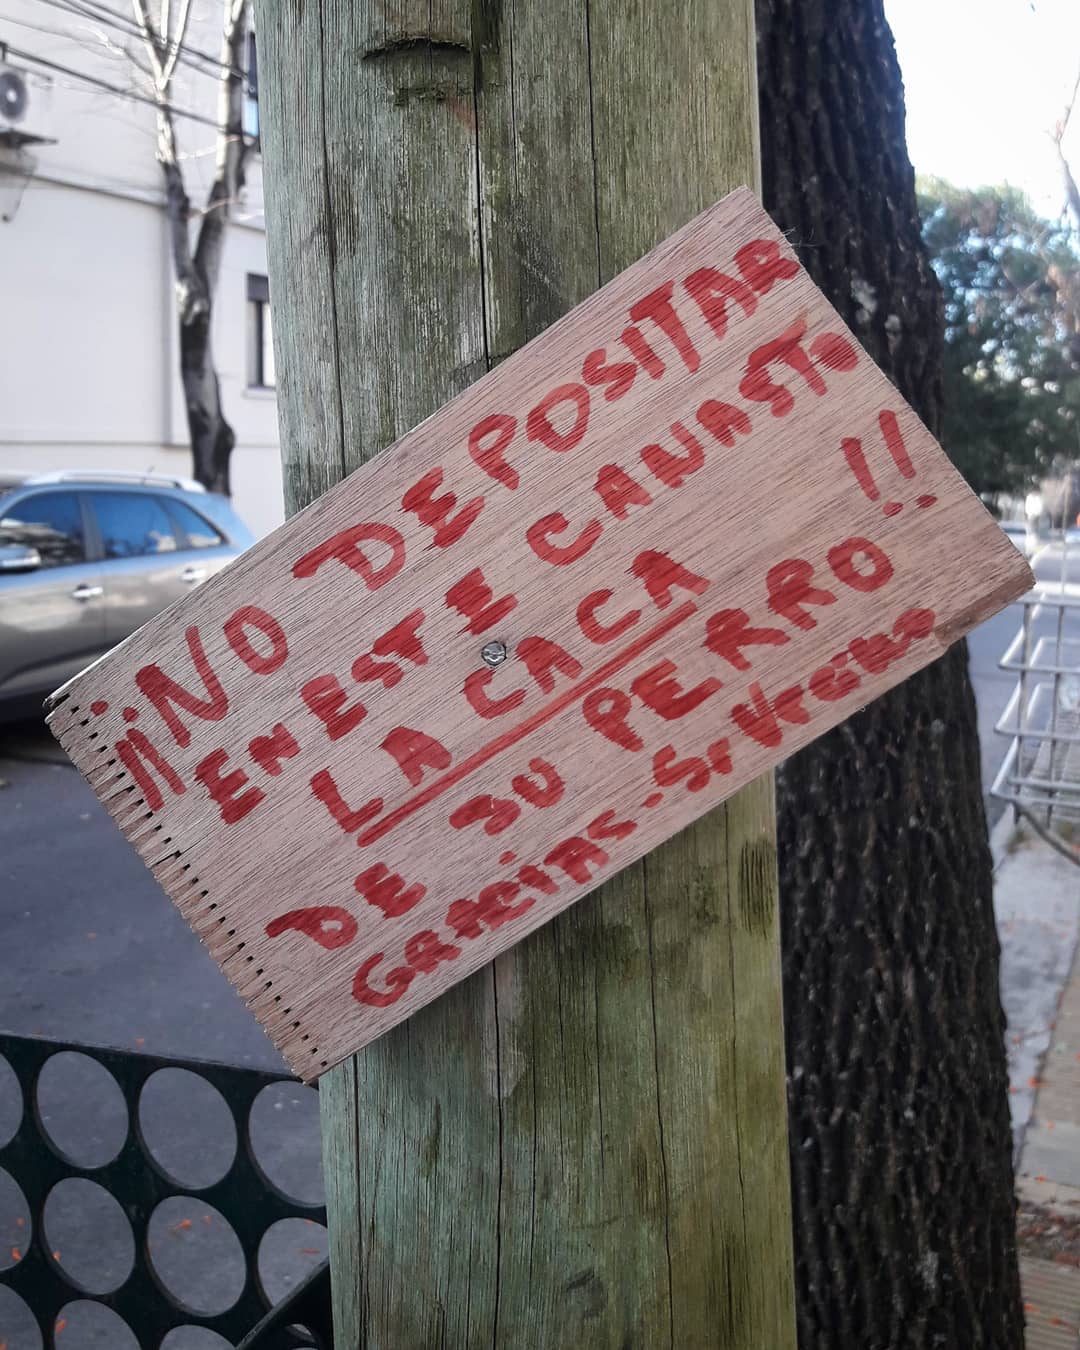 ¡¡NO DEPOSITAR
EN ESTE CANASTO
LA CACA !!
DE SU PERRO
GRACIAS. Su VECINO